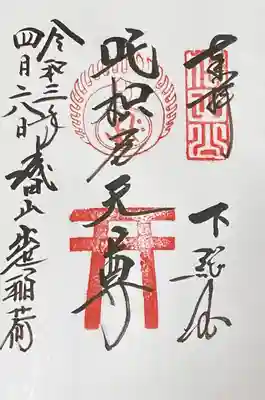 奉拝
下総国
吒枳尼天尊
令和三年
四月二八日
成田山出世稲荷